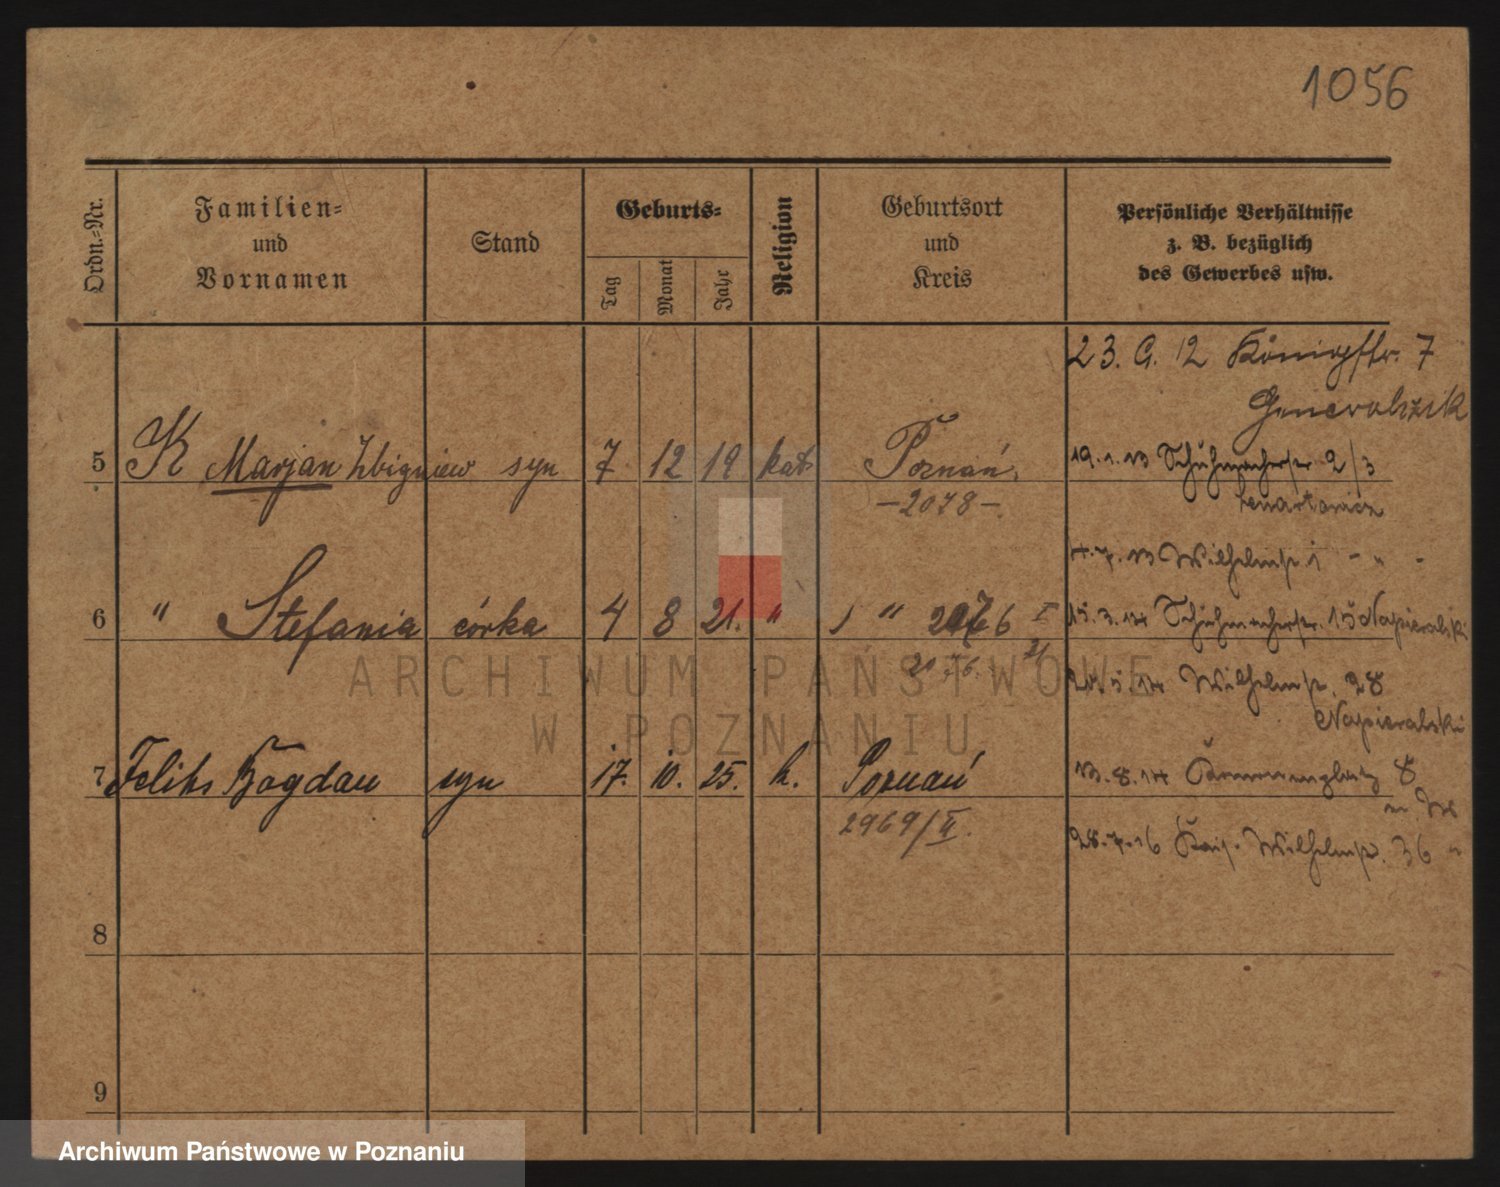 1056
Ordn.-Nr.
Familien-
und
Vornamen
Stand
Geburts-
Tag
Monat
Jahr
Religion
Geburtsort
und
Kreis
Persönliche Verhältnisse
z. B. bezüglich
des Gewerbes usw.
23. 9. 12 Königstr. 7
5 K Marjan Zbigniew syn 7 12 19 kat Poznań.
19.1.13 Schuhmacherstr 2/3
-2078-
4.7.13 Wilhelmstr 1 - " -
6 " Stefania córka 4 8 21. " "
15.3.14 Schuhmacherstr. 15 Napieralski
2076.
ARCHIWUM PAŃSTWOWE
W POZNANIU
Wilhelmstr. 28
Napieralski
7 Feliks Bogdan syn 17. 10. 25. k. Poznań
13.8.14
8
2969/II.
28.7.16 Kais. Wilhelmstr. 36
8
9
Archiwum Państwowe w Poznaniu